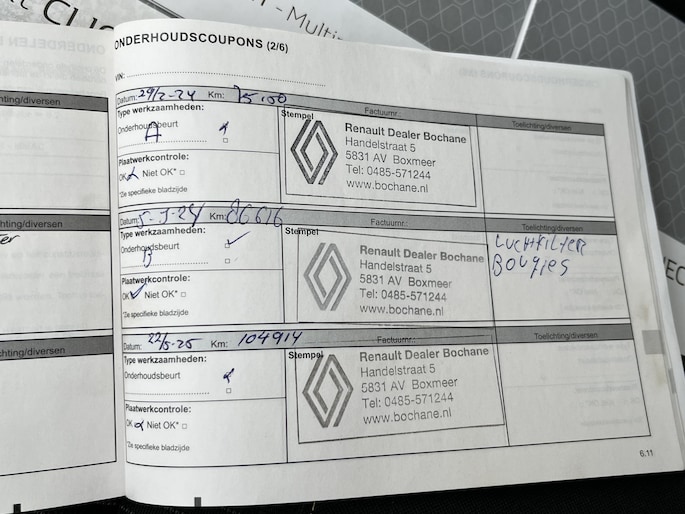 ONDERHOUDSCOUPONS (2/6)
VIN:
Datum: 29/2-24 Km: 75100
Factuurnr.:
Toelichting/diversen
Type werkzaamheden:
Onderhoudsbeurt
A
Plaatwerkcontrole:
OK Niet OK*
*Zie specifieke bladzijde
Stempel
Renault Dealer Bochane
Handelstraat 5
5831 AV Boxmeer
Tel: 0485-571244
www.bochane.nl
Datum: Km: 86616
Factuurnr.:
Toelichting/diversen
Type werkzaamheden:
Onderhoudsbeurt
B
Plaatwerkcontrole:
OK Niet OK*
*Zie specifieke bladzijde
Stempel
Renault Dealer Bochane
Handelstraat 5
5831 AV Boxmeer
Tel: 0485-571244
www.bochane.nl
Luchtfilter
Bougies
Datum: 22/5-25 Km: 104914
Factuurnr.:
Toelichting/diversen
Type werkzaamheden:
Onderhoudsbeurt
Plaatwerkcontrole:
OK Niet OK*
*Zie specifieke bladzijde
Stempel
Renault Dealer Bochane
Handelstraat 5
5831 AV Boxmeer
Tel: 0485-571244
www.bochane.nl
6.11